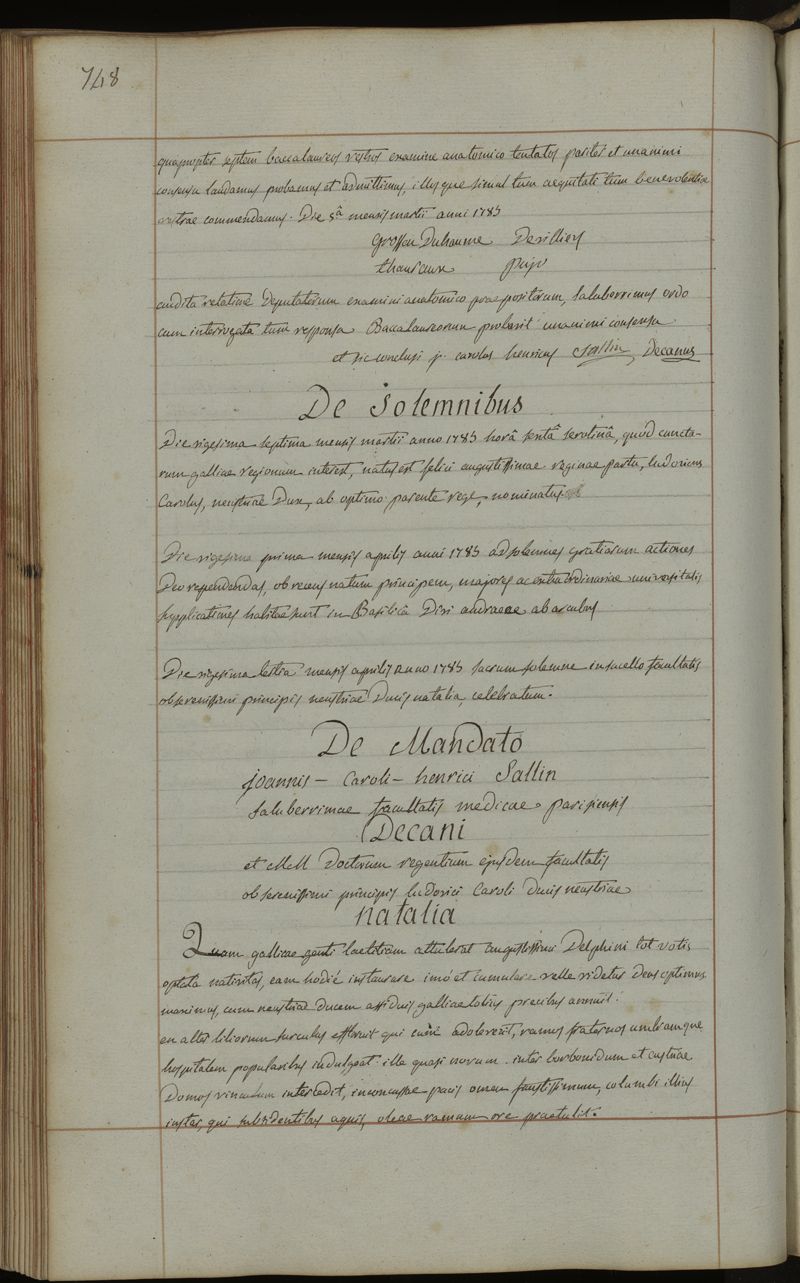 748
quapropter septem baccalaureos vestros examine anatomico tentatos pariter et unanimi
consensu laudamus probamus et admittimus, illosque simul tum aequitati tum benevolentiae
vestrae commendamus. Die 5â mensis martii anni 1785
Grossin Duhaume Desilliers
thauraux
audita relatione Deputatorum examini anatomico praepositorum, saluberrimus ordo
cum interrogata tum responsa Baccalaureorum probavit unanimi consensu
et sic conclusi j. carolus henricus Sallin Decanus
De Solemnibus
Die vigesima septima mensis martii anno 1785 horâ sextâ serotinâ, quòd cuncta-
rum galliae regionum interest, natus est felici augustissimae reginae partu, ludovicus
Carolus, neustriae Dux, ab optimo parente rege, nominatus
Die vigesima prima mensis aprilis anni 1785 ad solemnes gratiarum actiones
Deo rependendas, ob recens natum principem, majores ac extraordinariae universitatis
supplicationes habitae sunt in Basilicâ Divi andraeae ab arcubus
Die vigesima tertia mensis aprilis anno 1785 sacrum solemne in sacello facultatis
ob serenissimi principis neustriae Ducis natalia, celebratum.
De Mandato
joannis - Caroli - henrici Sallin
Saluberrimae facultatis medicae parisiensis
Decani
et MM Doctorum regentium ejusdem facultatis
ob serenissimi principis ludovici Caroli Ducis neustriae
natalia
Quam gallicae genti laetitiam attulerat augustissimi Delphini tot votis
optata nativitas, eam hodiè instaurare imò et cumulare velle videtur Deus optimus
maximus, cum neustriae ducem assiduis galliae totius precibus annuit.
en alter liliorum surculus effloruit qui cum adoleverit, ramos fraternos umbramque
hospitalem popularibus indulgeat. ille quasi novum inter borbonidum et austriae
Domos vinculum intercedit, inconcussae pacis omen faustissimum, columbi illius
instar, qui subsidentibus aquis, oleae ramum ore praetulit.